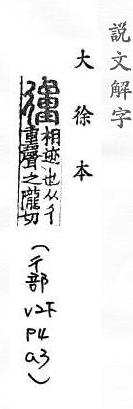 說文解字
大徐本
㣫 相迹也从彳
重聲之隴切
(彳部 V2下 P4 a3)